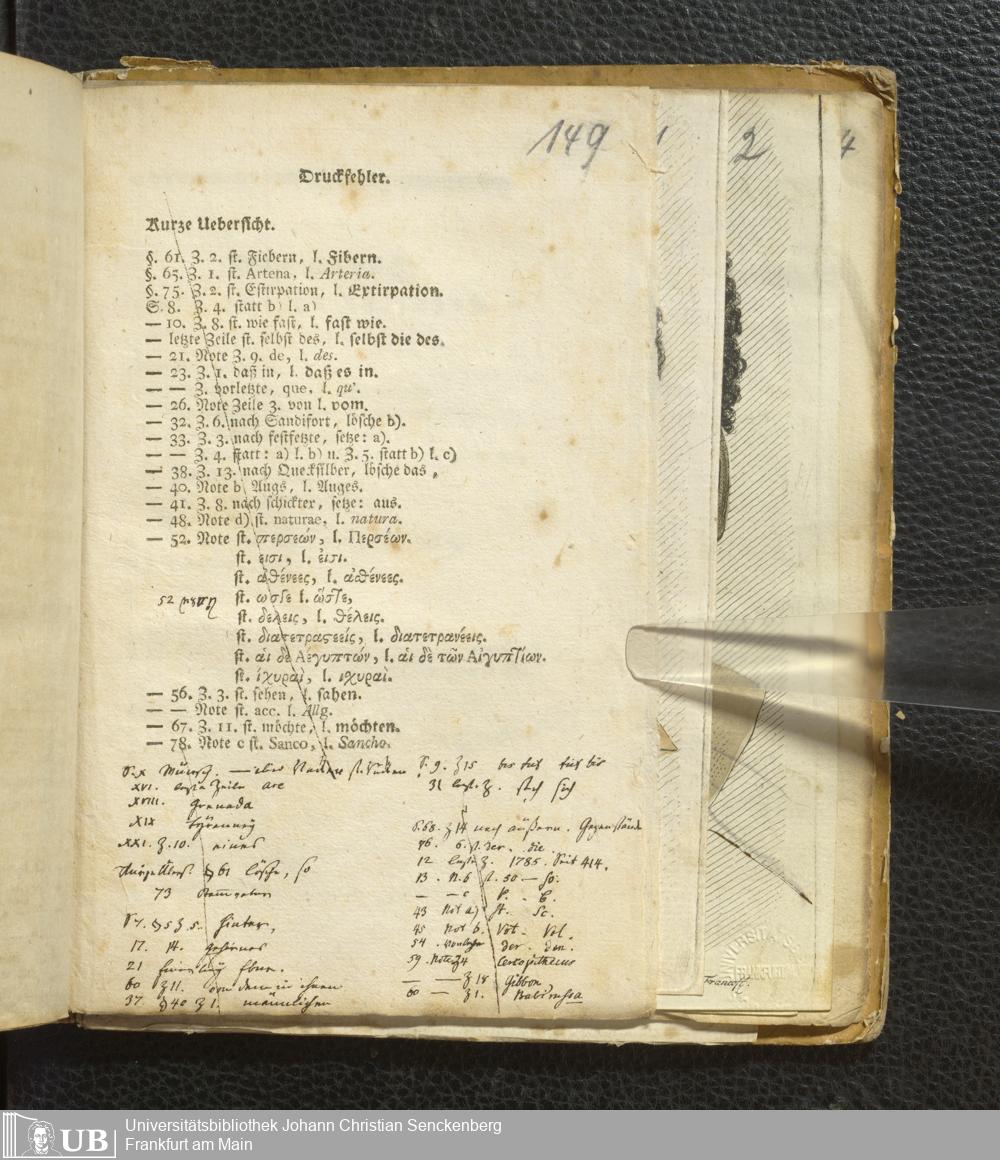 149
2
4
Druckfehler.
Kurze Uebersicht.
§. 61. Z. 2. st. Fiebern, l. Fibern.
§. 65. Z. 1. st. Artena, l. Arteria.
§. 75. Z. 2. st. Estirpation, l. Extirpation.
S. 8. Z. 4. statt b) l. a)
— 10. Z. 8. st. wie fast, l. fast wie.
— letzte Zeile st. selbst des, l. selbst die des.
— 21. Note Z. 9. de, l. des.
— 23. Z. 1. daß in, l. daß es in.
— — Z. vorletzte, que, l. qu'.
— 26. Note Zeile 3. von l. vom.
— 32. Z. 6. nach Sandifort, lösche b).
— 33. Z. 3. nach festsetzte, setze: a).
— — Z. 4. statt: a) l. b) u. Z. 5. statt b) l. c)
— 38. Z. 13. nach Quecksilber, lösche das ,
— 40. Note b Augs, l. Auges.
— 41. Z. 8. nach schickter, setze: aus.
— 48. Note d) st. naturae, l. natura.
— 52. Note st. περσεών, l. Περσέων.
st. εισι, l. ἐισι.
st. ἀθένεες, l. ἀσθένεες.
52
st. ωσδε l. ὥστε,
st. δελεις, l. θέλεις.
st. διατετρασεείς, l. διατετρανέεις.
st. ἁι δὲ Αέγυπτών, l. ἁι δὲ τῶν Αἰγυπτίων.
st. ἰχυραὶ, l. ισχυραὶ.
— 56. Z. 3. st. sehen, l. sahen.
— — Note st. acc. l. Allg.
— 67. Z. 11. st. möchte, l. möchten.
— 78. Note c st. Sanco, l. Sancho.
XVI. letzte Zeile
XVIII. Grenada
XIX
XXI. Z. 10. eines
§ 61 lösche, so
73
§ 5 Z 5. hinter,
17. 14.
21
60 Z 11. von dem in ihnen
37 § 40 Z 1. männlichen
S. 9. Z 15
31 letzt. Z. sich
S. 68. Z 14 nach äußern. Gegenstände
76. 6. st. der. die
12 letzte Z. 1785. Seit 414.
13. N. b st. 50 — 80.
— — c P. — B.
43 Not a) st. Sc.
45 Not b. Vot. Vol.
54 der. den.
59. Note Z 4 Cercopithecus
— — Z 18 Gibbon
60 — Z 1. Babirussa
Francof.
UNIVERSITÄTS
FRANKFURT
UB
Universitätsbibliothek Johann Christian Senckenberg
Frankfurt am Main